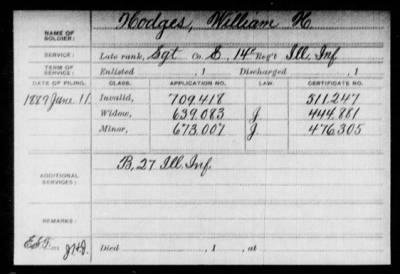 NAME OF SOLDIER: Hodges, William H
SERVICE: Late rank, Sgt Co. E, 14" Reg't Ill. Inf
TERM OF SERVICE: Enlisted , 1 Discharged , 1
DATE OF FILING. CLASS. APPLICATION NO. LAW. CERTIFICATE NO.
1889 June 11. Invalid, 709.418 511.247
Widow, 639.083 J. 444.881
Minor, 673.007 J. 476305
ADDITIONAL SERVICES: B, 27 Ill. Inf.
REMARKS:
Died , 1 , at